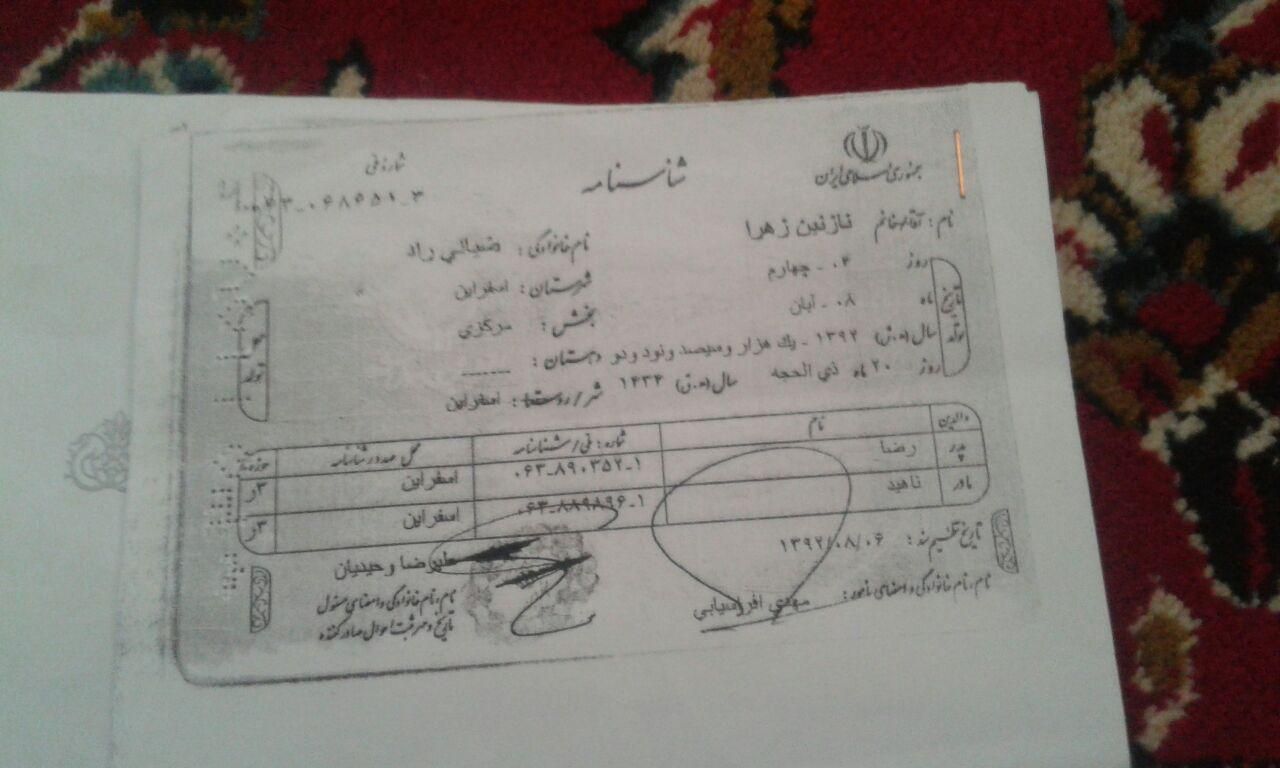 جمهوری اسلامی ایران
شناسنامه
شماره ملی
نام: آقا/خانم نازنین زهرا
نام خانوادگی: ضیائی راد
تاریخ تولد
روز ۰۴ - چهارم
شهرستان: اسفراین
ماه ۰۸ - آبان
بخش: مرکزی
سال (ه.ش) ۱۳۹۲ - یک هزار و سیصد و نود و دو
دهستان: ------
روز ۲۰ ماه ذی الحجه سال (ه.ق) ۱۴۳۴
شهر/روستا: اسفراین
والدین نام شماره: ملی/شناسنامه محل صدور شناسنامه حوزه
پدر رضا ۰۶۳-۸۹۰۳۵۲-۱ اسفراین ۳ر
مادر ناهید ۰۶۳-۸۸۹۸۹۶-۱ اسفراین ۳ر
تاریخ تنظیم سند: ۱۳۹۲/۰۸/۰۶
علیرضا وحیدیان
نام، نام خانوادگی و امضای مأمور: مهدی افراسیابی
نام، نام خانوادگی و امضای مسئول
تاریخ و مهر ثبت احوال صادرکننده